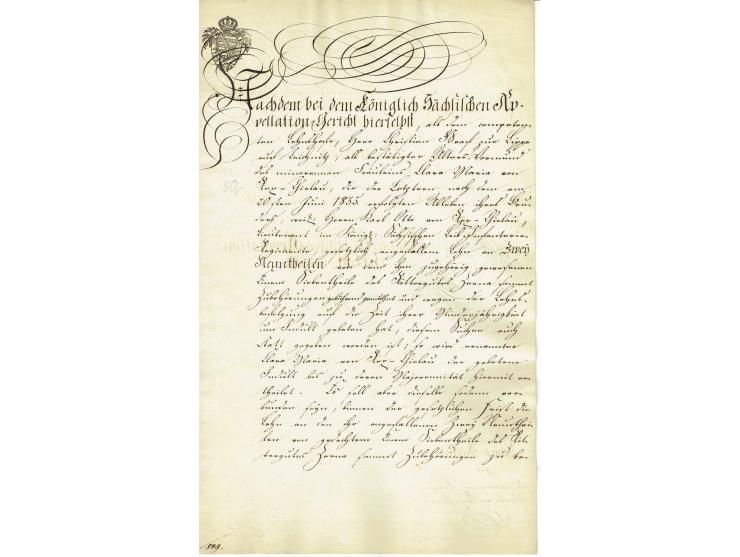 Nachdem bei dem Königlich Sächsischen Ap-
pellation-Gericht hierselbst, als dem competen-
ten Lehnhofe, Herr Christian Graf zur Lippe
auf Teichnitz, als bestätigter Alters-Vormund
des minorennen Fräuleins Clara Maria von
Ker-Thielau, die der Letztern nach dem am
20sten Juni 1855. erfolgten Ableben ihres Bru-
ders, weil. Herrn Karl Otto von Ker-Thielau,
Lieutenant im Königl: Sächsischen Leib-Infanterie-
Regimente, gesetzlich angefallene Lehn an Zwey
Neuntheilen von dem ihm zugehörig gewesenen
Einem Siebentheile des Rittergutes Zerna sammt
Zubehörungen gebührend gemuthet und wegen der Lehns-
befolgung auf die Zeit ihrer Minderjährigkeit
um Indult gebeten hat, diesem Suchen auch
statt gegeben worden ist; so wird ernannter
Clara Maria von Ker-Thielau der gebetene
Indult bis zu deren Majorennität hiermit er-
theilet. Es soll aber dieselbe sodann ver-
bunden seyn, binnen der gesetzlichen Frist die
Lehn an den ihr angefallenen Zwey Neunthei-
len von gedachtem Einem Siebentheile des Rit-
tergutes Zerna sammt Zubehörungen zu be-
849.